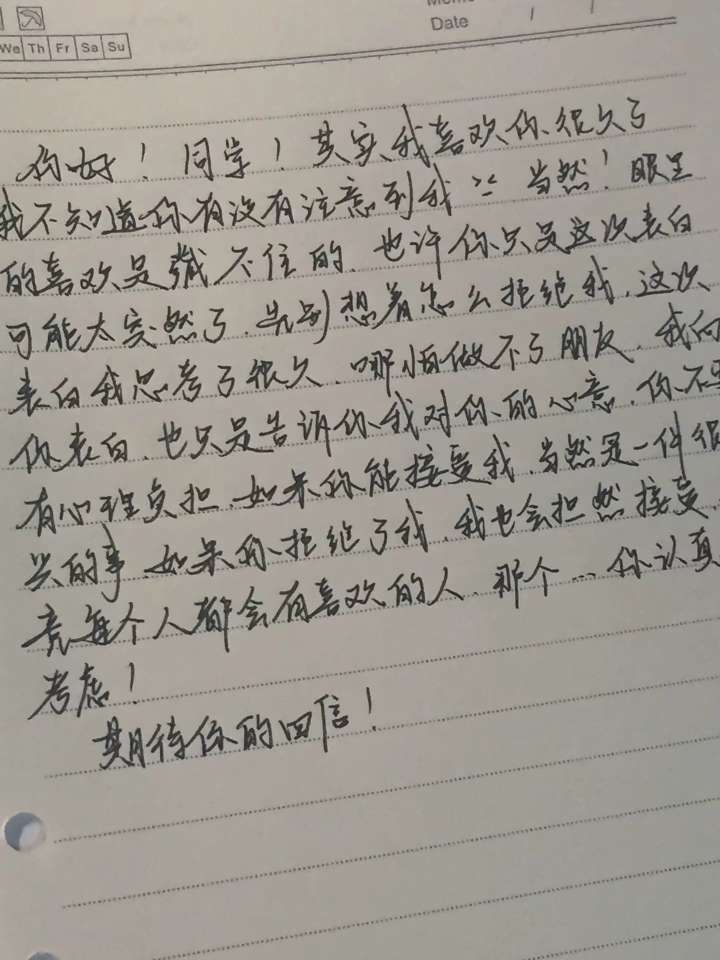 Date / /
We Th Fr Sa Su
你好！同学！其实我喜欢你很久了
我不知道你有没有注意到我 当然！眼里
的喜欢是藏不住的、也许你只是这次表白
可能太突然了、先别想着怎么拒绝我、这次
表白我思考了很久、哪怕做不了朋友、我向
你表白、也只是告诉你我对你的心意、你不
有心理负担、如果你能接受我、当然是一件很
兴的事、如果你拒绝了我、我也会担然接受、
竟每个人都会有喜欢的人、那个…你认真
考虑！
期待你的回信！